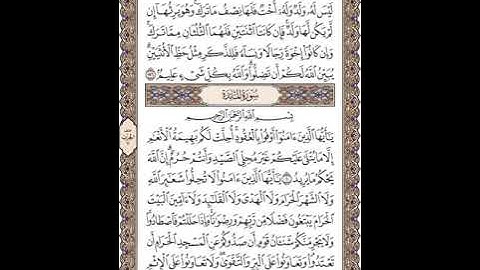 لَيْسَ لَهُۥ وَلَدٌ وَلَهُۥٓ أُخْتٌ فَلَهَا نِصْفُ مَا تَرَكَ وَهُوَ يَرِثُهَآ إِن
لَّمْ يَكُن لَّهَا وَلَدٌ فَإِن كَانَتَا ٱثْنَتَيْنِ فَلَهُمَا ٱلثُّلُثَانِ مِمَّا تَرَكَ
وَإِن كَانُوٓا۟ إِخْوَةً رِّجَالًا وَنِسَآءً فَلِلذَّكَرِ مِثْلُ حَظِّ ٱلْأُنثَيَيْنِ
يُبَيِّنُ ٱللَّهُ لَكُمْ أَن تَضِلُّوا۟ وَٱللَّهُ بِكُلِّ شَىْءٍ عَلِيمٌۢ ١٧٦
سُورَةُ المَائِدَةِ
بِسْمِ ٱللَّهِ ٱلرَّحْمَٰنِ ٱلرَّحِيمِ
يَٰٓأَيُّهَا ٱلَّذِينَ ءَامَنُوٓا۟ أَوْفُوا۟ بِٱلْعُقُودِ أُحِلَّتْ لَكُم بَهِيمَةُ ٱلْأَنْعَٰمِ
إِلَّا مَا يُتْلَىٰ عَلَيْكُمْ غَيْرَ مُحِلِّى ٱلصَّيْدِ وَأَنتُمْ حُرُمٌ إِنَّ ٱللَّهَ
يَحْكُمُ مَا يُرِيدُ ١ يَٰٓأَيُّهَا ٱلَّذِينَ ءَامَنُوا۟ لَا تُحِلُّوا۟ شَعَٰٓئِرَ ٱللَّهِ
وَلَا ٱلشَّهْرَ ٱلْحَرَامَ وَلَا ٱلْهَدْىَ وَلَا ٱلْقَلَٰٓئِدَ وَلَآ ءَآمِّينَ ٱلْبَيْتَ
ٱلْحَرَامَ يَبْتَغُونَ فَضْلًا مِّن رَّبِّهِمْ وَرِضْوَٰنًا وَإِذَا حَلَلْتُمْ فَٱصْطَادُوا۟
وَلَا يَجْرِمَنَّكُمْ شَنَـَٔانُ قَوْمٍ أَن صَدُّوكُمْ عَنِ ٱلْمَسْجِدِ ٱلْحَرَامِ أَن
تَعْتَدُوا۟ وَتَعَاوَنُوا۟ عَلَى ٱلْبِرِّ وَٱلتَّقْوَىٰ وَلَا تَعَاوَنُوا۟ عَلَى ٱلْإِثْمِ